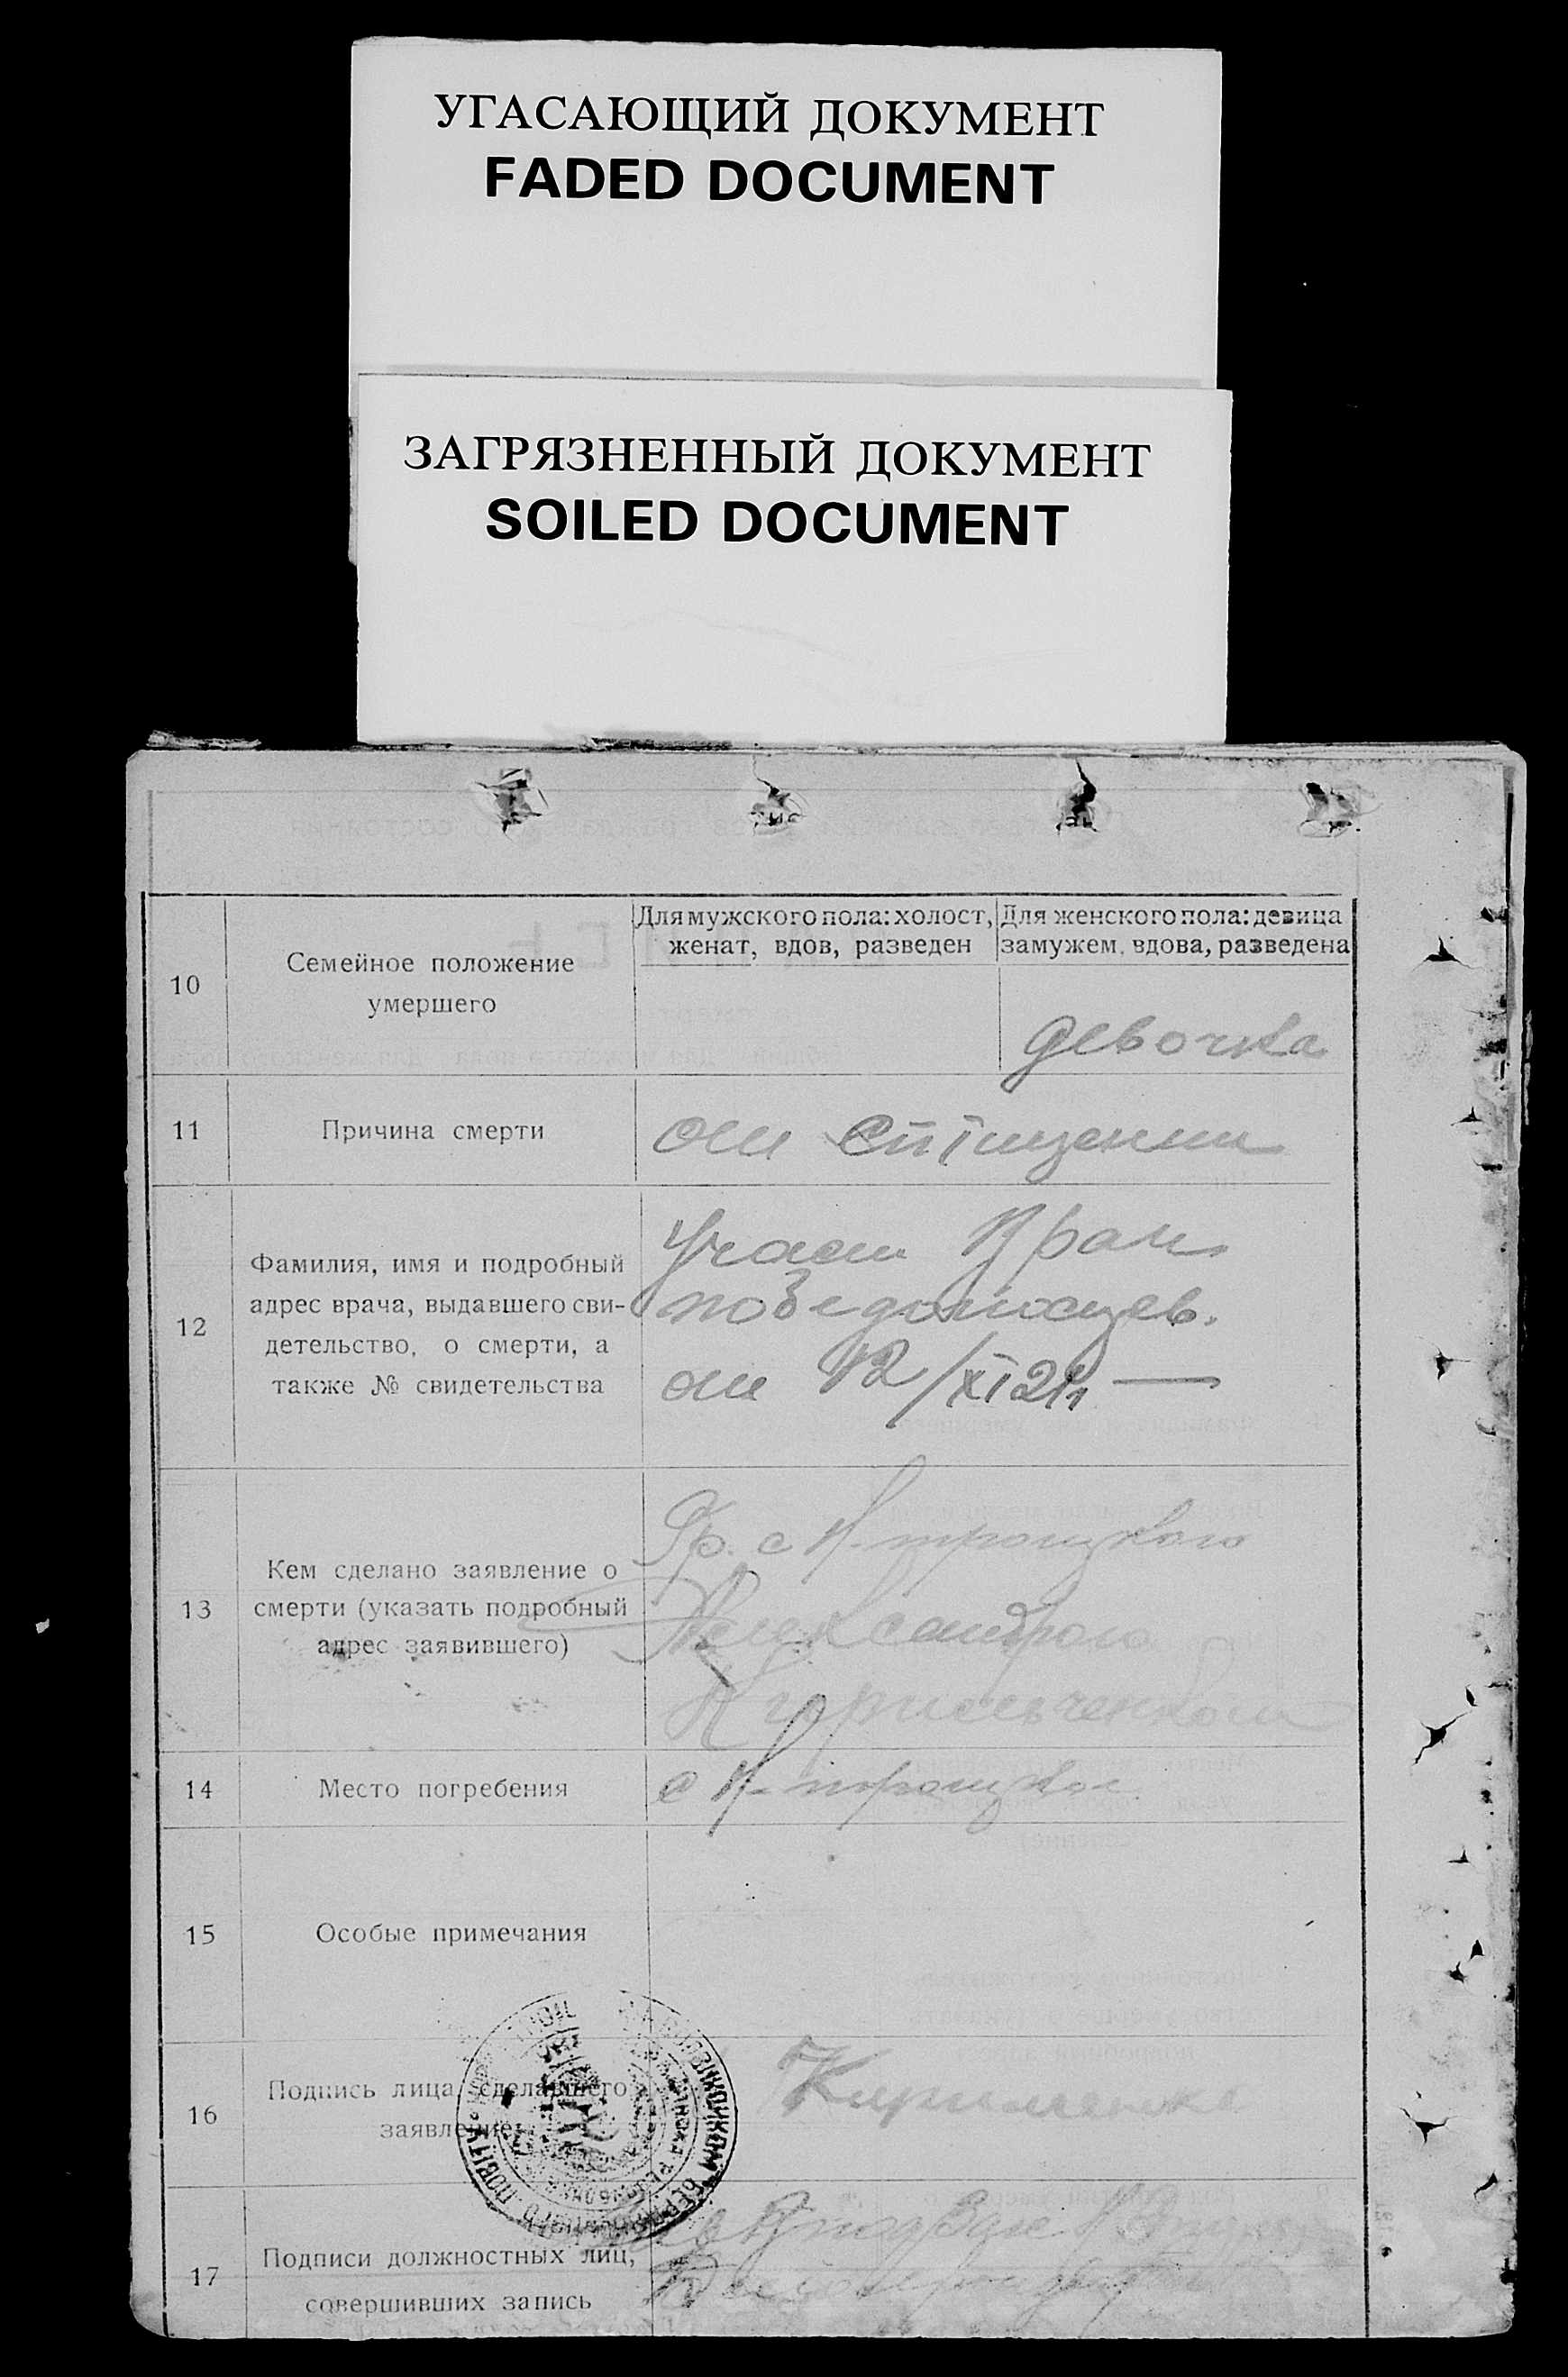 УГАСАЮЩИЙ ДОКУМЕНТ
FADED DOCUMENT
ЗАГРЯЗНЕННЫЙ ДОКУМЕНТ
SOILED DOCUMENT
10
Семейное положение
умершего
Для мужского пола: холост,
женат, вдов, разведен
Для женского пола: девица
замужем, вдова, разведена
девочка
11
Причина смерти
от
12
Фамилия, имя и подробный
адрес врача, выдавшего сви-
детельство, о смерти, а
также № свидетельства
Участ Врач
от 12/XI 21
13
Кем сделано заявление о
смерти (указать подробный
адрес заявившего)
Гр. с Н. троицкого
Александрою
14
Место погребения
с Н. троицкое
15
Особые примечания
16
Подпись лица, сделавшего
заявление
17
Подписи должностных лиц,
совершивших запись